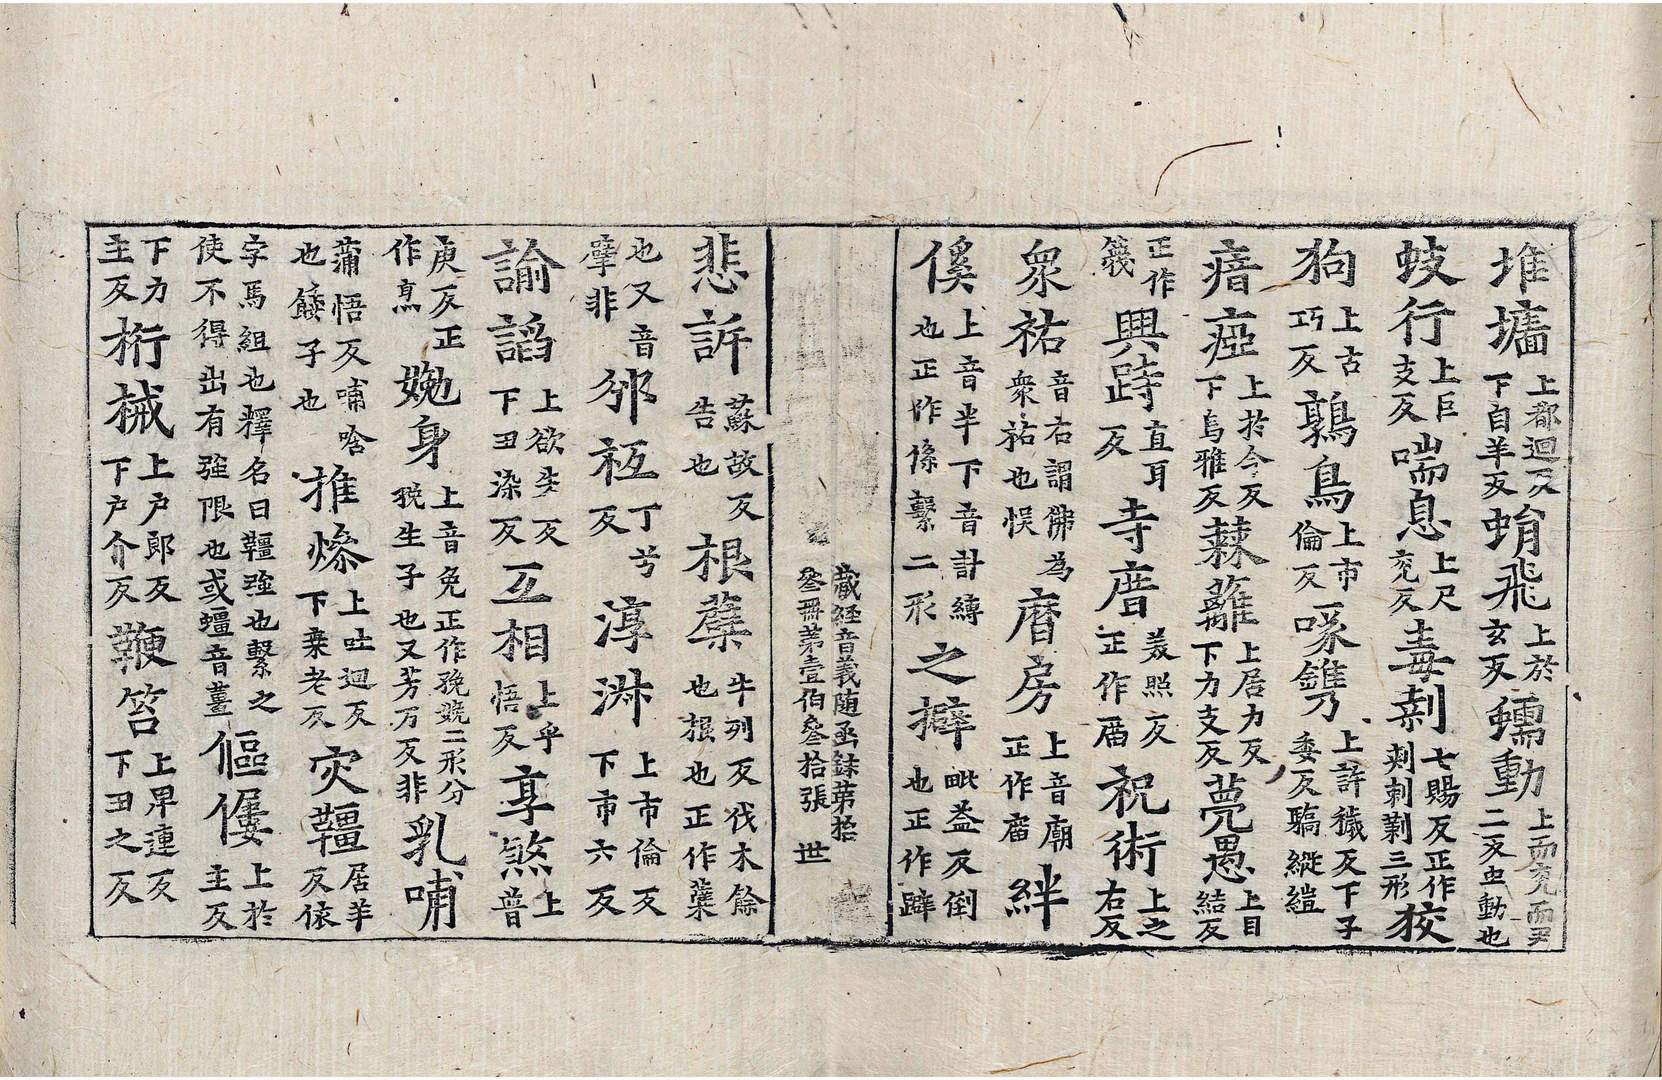 堆墉上都迴反下自羊反蜎飛上於玄反蠕動上而兖而尹二反虫動也
蚑行上巨支反喘息上尺兖反毒剌七賜反正作刾刺剿三形狡
狗上古巧反鶉鳥上市倫反喙鑴上許穢反下子委反驈縱𨪋
瘖瘂上於今反下烏雅反蕀蘺上居力反下力支反薨愚上目結反
正作羛興跱直耳反寺厝羙照反正作庿祝術上之右反
衆祐音右謂佛為衆祐也悮庿房上音廟正作庿絆
傒上音半下音計縛也正作係繫二形之擗毗益反倒也正作躃
藏經音義随函録第拾叁冊第壹伯叁拾張 世
悲訴蘇故反告也根蘖牛列反伐木餘也根也正作蘗
也又音孽非邠袛丁兮反淳淋上市倫反下市六反
諭謟上欲朱反下丑染反互相上乎悟反享煞上普
庚反正作烹娩身上音免正作㝃㝃二形分娩生子也又芳万反非乳哺
蒲悟反哺唅也餧子也推燎上吐迴反下耒老反灾韁居羊反依
字馬紲也釋名曰韁疆也繫之使不得出有強限也或繮音薑傴僂上於主反
下力主反桁械上戶郎反下戶介反鞭笞上卑連反下丑之反